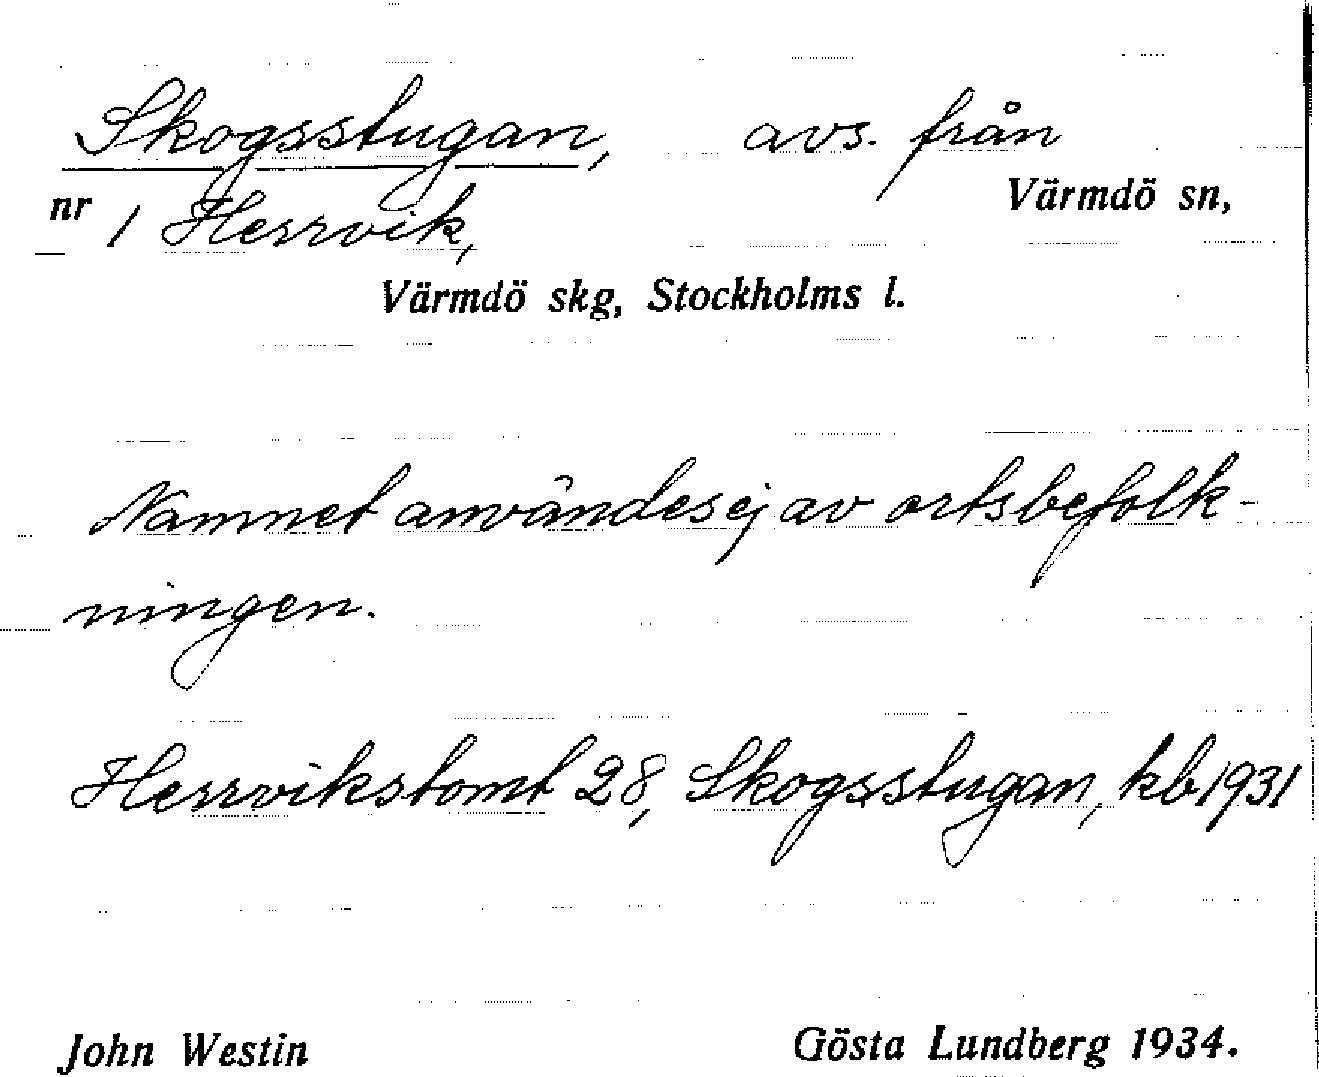 Skogsstugan, avs. från
nr 1 Herrvik, Värmdö sn,
Värmdö skg, Stockholms l.
Namnet användes ej av ortsbefolk-
ningen.
Herrvikstomt 28, Skogsstugan, kb 1931
John Westin Gösta Lundberg 1934.